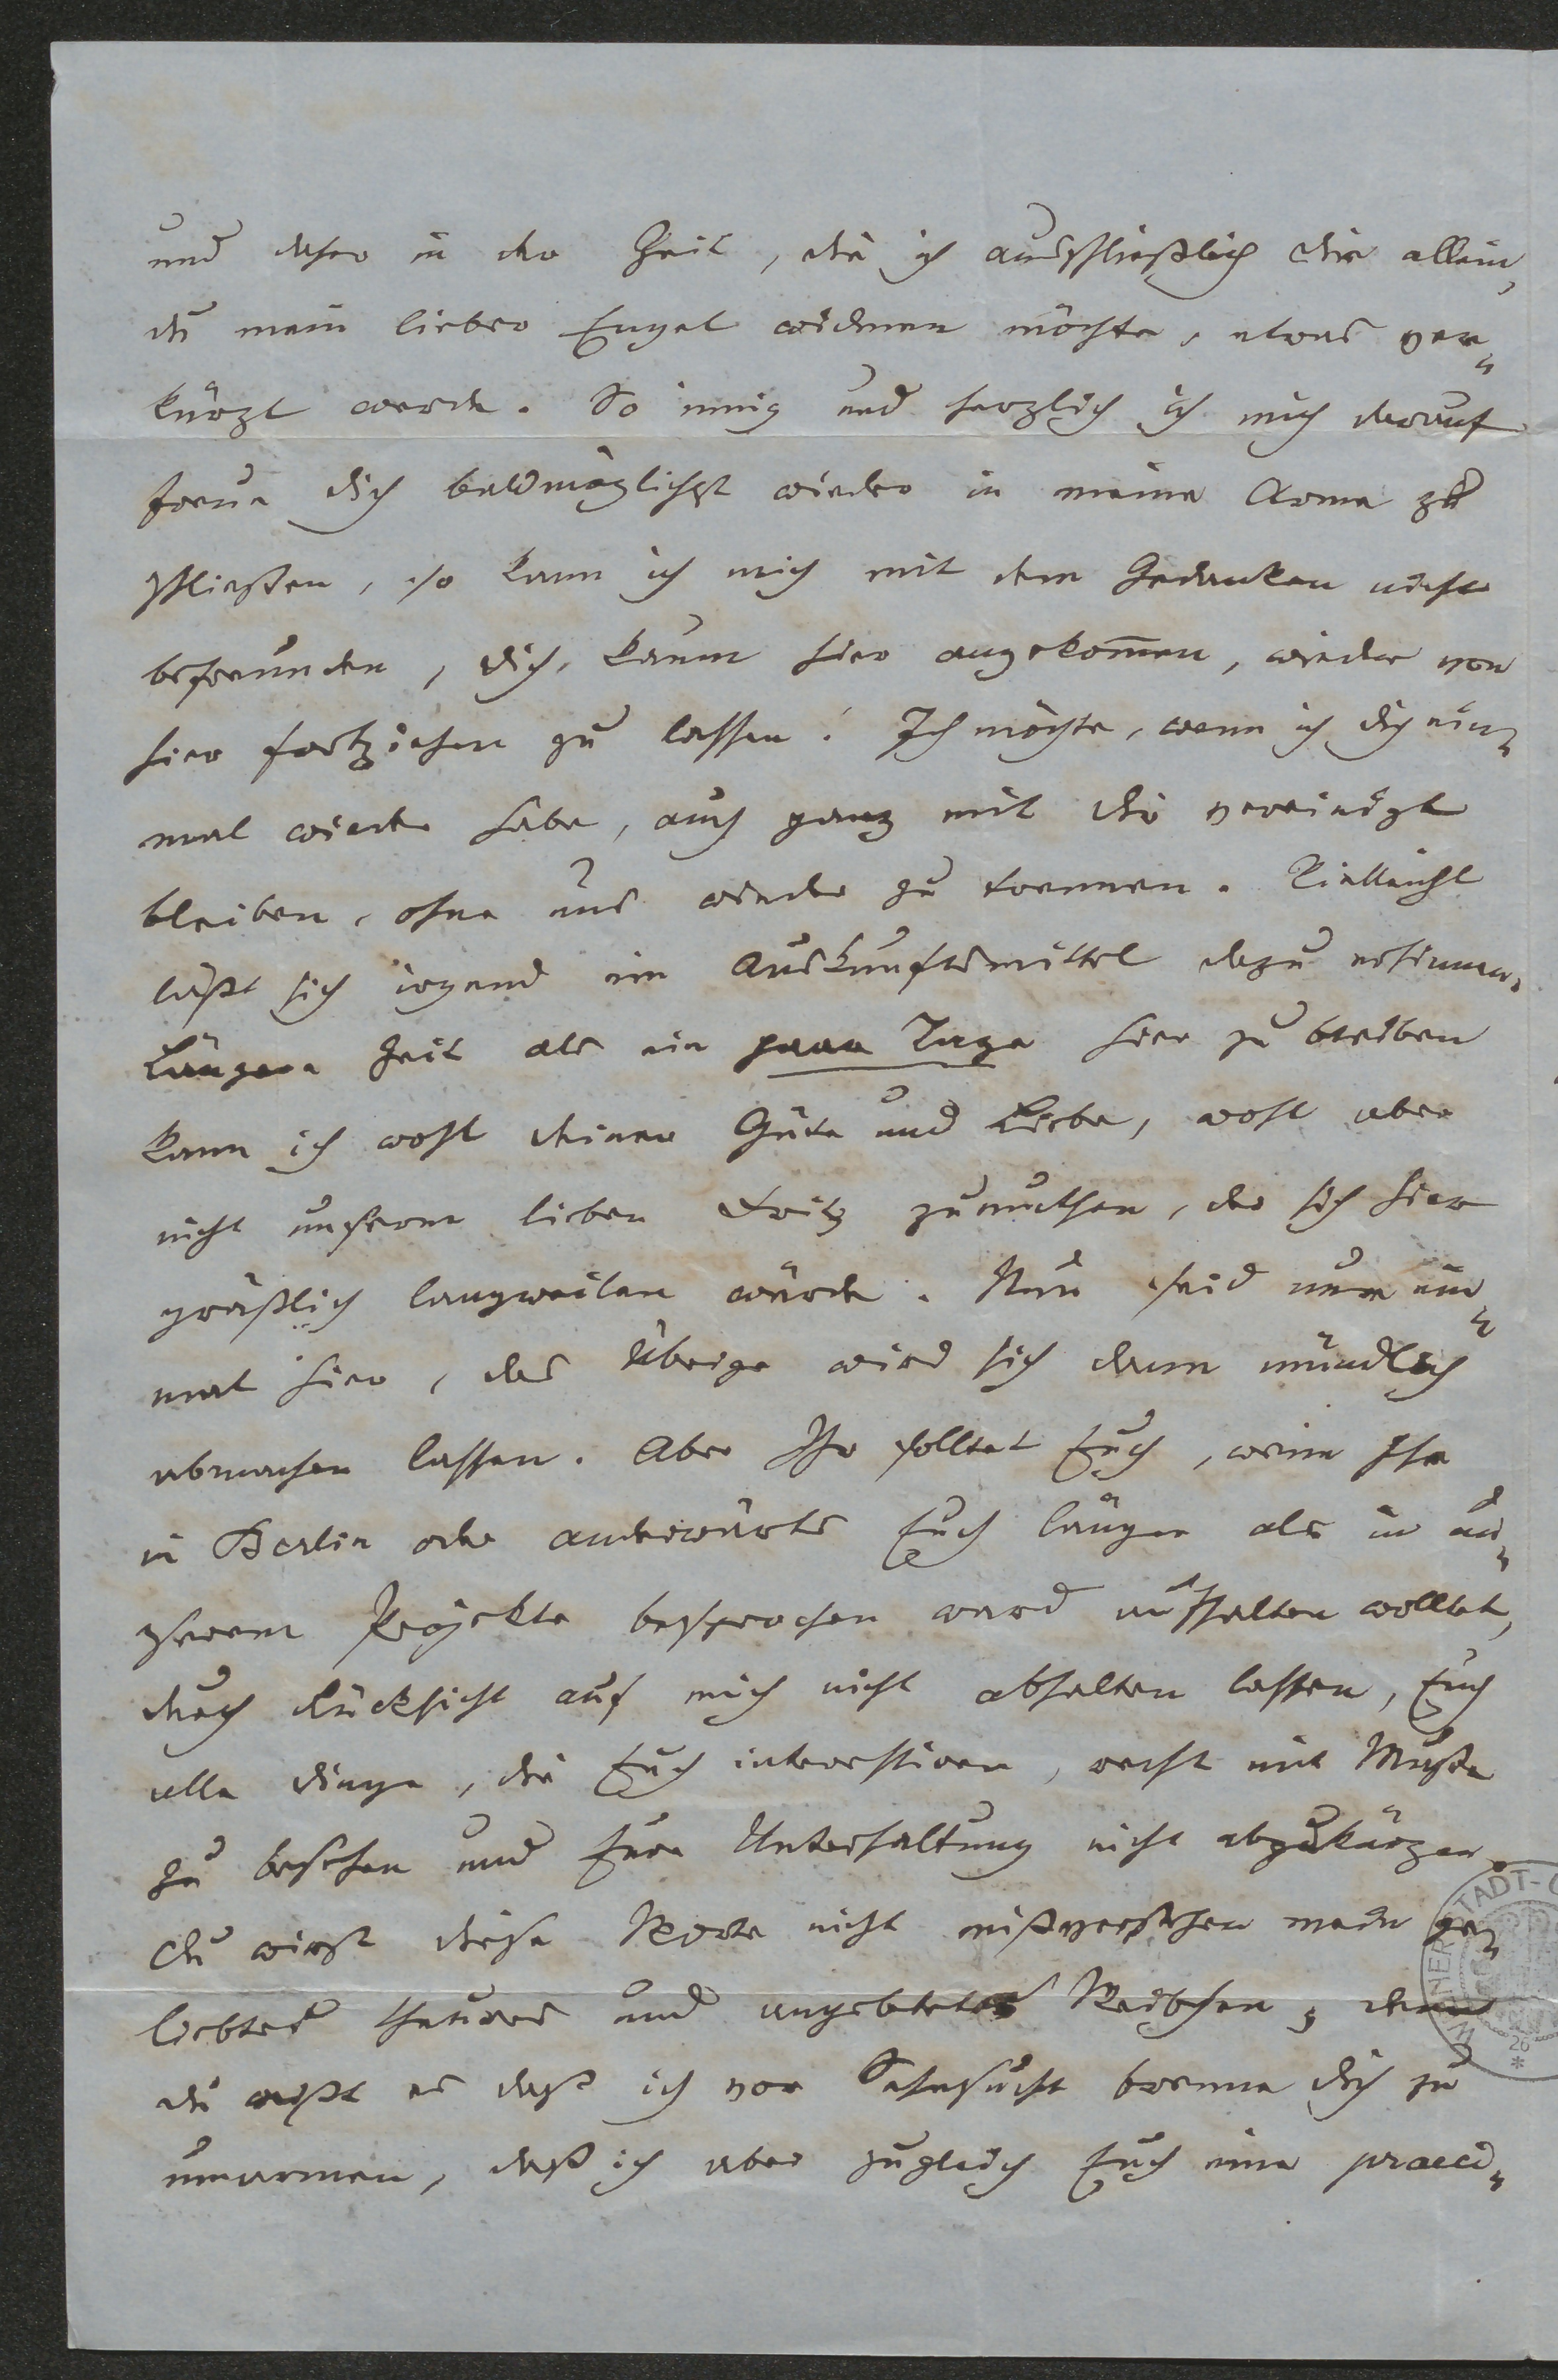 und daher in der Zeit, die ich ausschließlich dir allein,
du mein lieber Engel widmen möchte, etwas ver-
kürzt werde. So innig und herzlich ich mich darauf
freue dich baldmöglichst wieder in meine Arme zu
schließen, so kann ich mich mit dem Gedanken nicht
befreunden, dich, kaum hier angekommen, wieder von
hier fortziehen zu lassen! Ich möchte, wenn ich dich ein-
mal wieder habe, auch ganz mit dir vereinigt
bleiben, ohne uns wieder zu trennen. Vielleicht
läßt sich irgend ein Auskunftsmittel dazu ersinnen.
Längere Zeit als ein paar Tage hier zu bleiben
kann ich wohl deiner Güte und Liebe, wohl aber
nicht unserm lieben Fritz zumuthen, der sich hier
gräßlich langweilen würde. Nun seid nur ein-
mal hier, das Übrige wird sich dann mündlich
abmachen lassen. Aber Ihr solltet Euch, wenn Ihr
in Berlin oder anderwärts Euch länger als in un-
serem Projekte besprochen ward aufhalten wolltet,
durch Rücksicht auf mich nicht abhalten lassen, Euch
alle Dinge, die Euch interessiren, recht mit Muße
zu besehen und Eure Unterhaltung nicht abzukürzen.
Du wirst diese Worte nicht mißverstehen mein ge-
liebtes theures und angebetetes Weibchen, denn
du weißt es daß ich vor Sehnsucht brenne dich zu
umarmen, daß ich aber zugleich Euch eine
WIENER STADT-
26